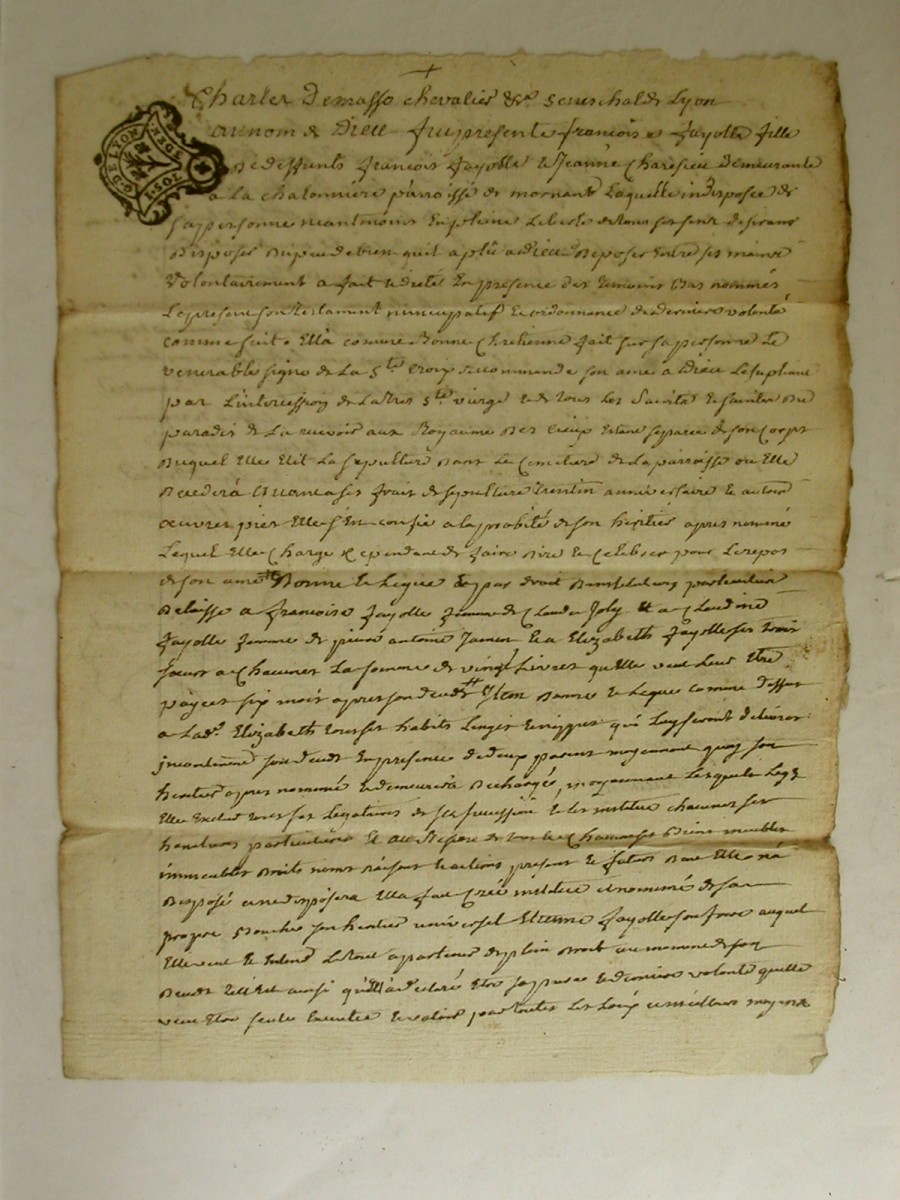 Charles Demasso chevalier &c. senechal de Lyon
au nom de Dieu fut presente françoise fayolle fille
de deffunts françois fayolle et Jeanne Charesieu demeurante
a La chalonniere parroisse de mornant Laquelle indisposée de
sa personne neantmoins en pleine Liberté de tous ses sens desirant
disposer du peu de bien quil a plû a Dieu deposer entre ses mains
volontairement a fait et dicté en presence des temoins bas nommés
Le present son testament nuncupatif et ordonnance de derniere volonté
comme suit. Ella comme bonne chretienne fait sur sa personne Le
venerable signe de La Ste croix recommande son ame a Dieu Le supliant
par L'intercession de La tres Ste vierge et de tous Les saints et saintes du
paradis de La recevoir aux Royaume des cieux etant separée de son corps
duquel Elle Elit La sepulture dans Le cimetiere de La parroisse ou Elle
decedera quant a ses frais de sepulture trentin anniversaire et autres
œuvres pies Elle s'En confie a la probité de son heritier apres nommé
Lequel Elle charge cependant de faire dire et celebrer pour Le repos
de son ame donne et Legue et par droit d'institution particuliere
delaisse a françoise fayolle femme de Claude Joly et a Claudine
fayolle femme de pierre antoine Jamen et a Elizabeth fayolle ses trois
sœurs a chacunes La somme de vingt Livres qu'Elle veut Leur Etre
payées six mois apres son deceds Item donne et Legue comme dessus
a Lad. Elizabeth tous ses habits Linges et nippes qui Luy seront delivrés
incontinent son deceds en presence de deux parens moyennant quoy son
heritier apres nommé et demeurera dechargé, moyennant Lesquels Legs
Elle Exclud tous ses Legataires de sa succession et Les institue chacunes ses
heritieres particulieres et au Residu de tous et chacuns ses biens meubles
immeubles droits noms raisons et actions present et futurs dont Elle n'a
disposé ou ne disposera Ella fait créé institué et nommé de sa
propre bouche son heritier universel Etienne fayolle son frere auquel
Elle veut et Entend Le tout apartenir de plein droit au moment de son
deceds tel Est ainsi qu'Ell a declaré Etre sa pure et derniere volonté quelle
veut Etre seule Executée et valoir par toutes Les Loix et meilleurs moyens
G. DE LYON